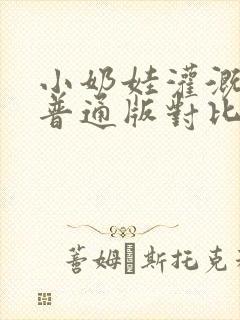 小奶娃灌溉
普通版對比
蓍姆斯托克